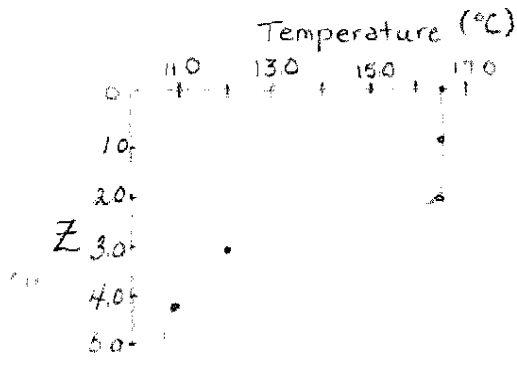 Temperature (°C)
11.0 13.0 15.0 17.0
0
1.0
2.0
Z 3.0
4.0
5.0